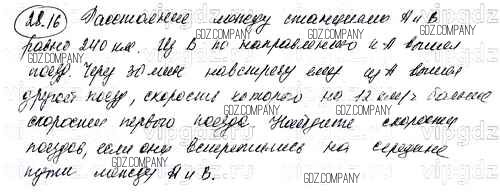 22.16 Расстояние между станциями А и В
равно 240 км. Из В по направлению к А вышел
поезд. Через 30 мин навстречу ему из А вышел
другой поезд, скорость которого на 12 км/ч больше
скорости первого поезда. Найдите скорости
поездов, если они встретились на середине
пути между А и В.
GDZ.COMPANY
vipgdz